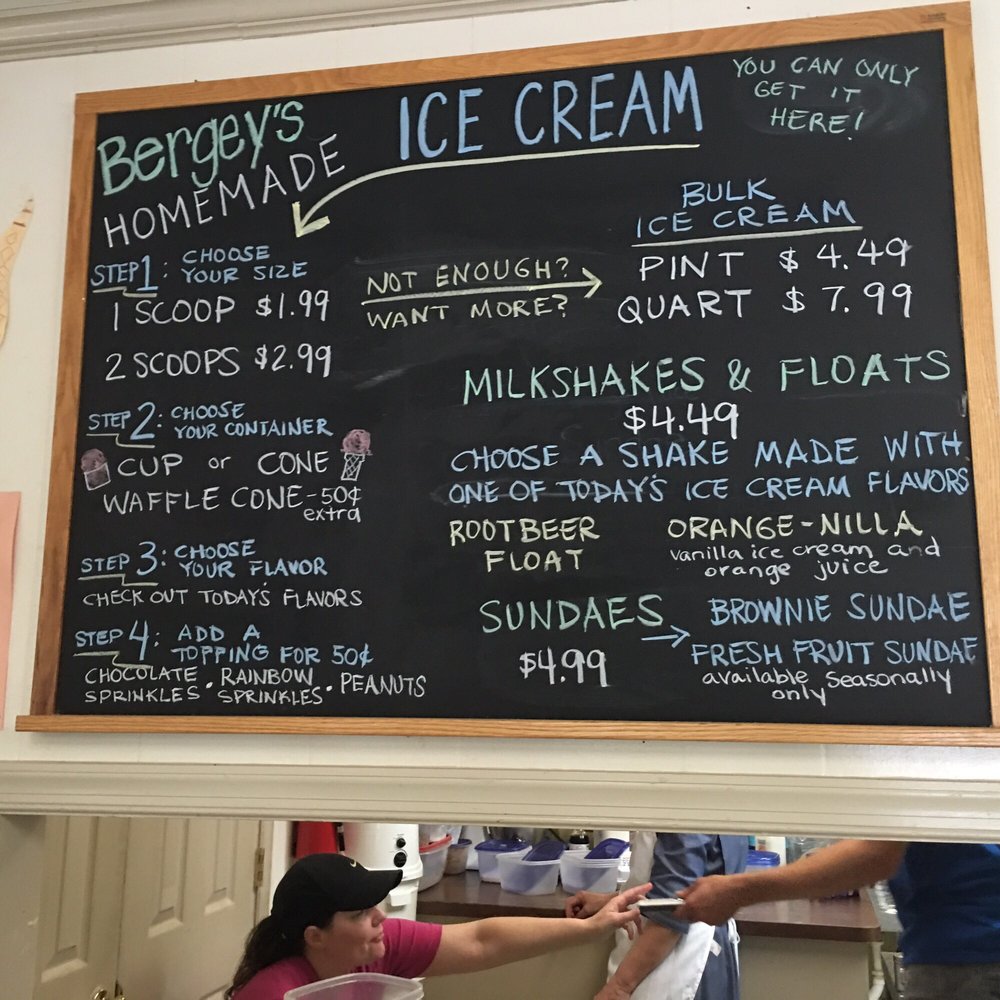 Bergey's
HOMEMADE
ICE CREAM
YOU CAN ONLY
GET IT
HERE!
STEP 1: CHOOSE
YOUR SIZE
1 SCOOP $1.99
2 SCOOPS $2.99
STEP 2: CHOOSE
YOUR CONTAINER
CUP or CONE
WAFFLE CONE-50¢
extra
STEP 3: CHOOSE
YOUR FLAVOR
CHECK OUT TODAY'S FLAVORS
STEP 4: ADD A
TOPPING FOR 50¢
CHOCOLATE
SPRINKLES · RAINBOW
SPRINKLES · PEANUTS
NOT ENOUGH?
WANT MORE?
BULK
ICE CREAM
PINT $4.49
QUART $7.99
MILKSHAKES & FLOATS
$4.49
CHOOSE A SHAKE MADE WITH
ONE OF TODAY'S ICE CREAM FLAVORS
ROOTBEER
FLOAT
ORANGE-NILLA
vanilla ice cream and
orange juice
SUNDAES
$4.99
BROWNIE SUNDAE
FRESH FRUIT SUNDAE
available seasonally
only